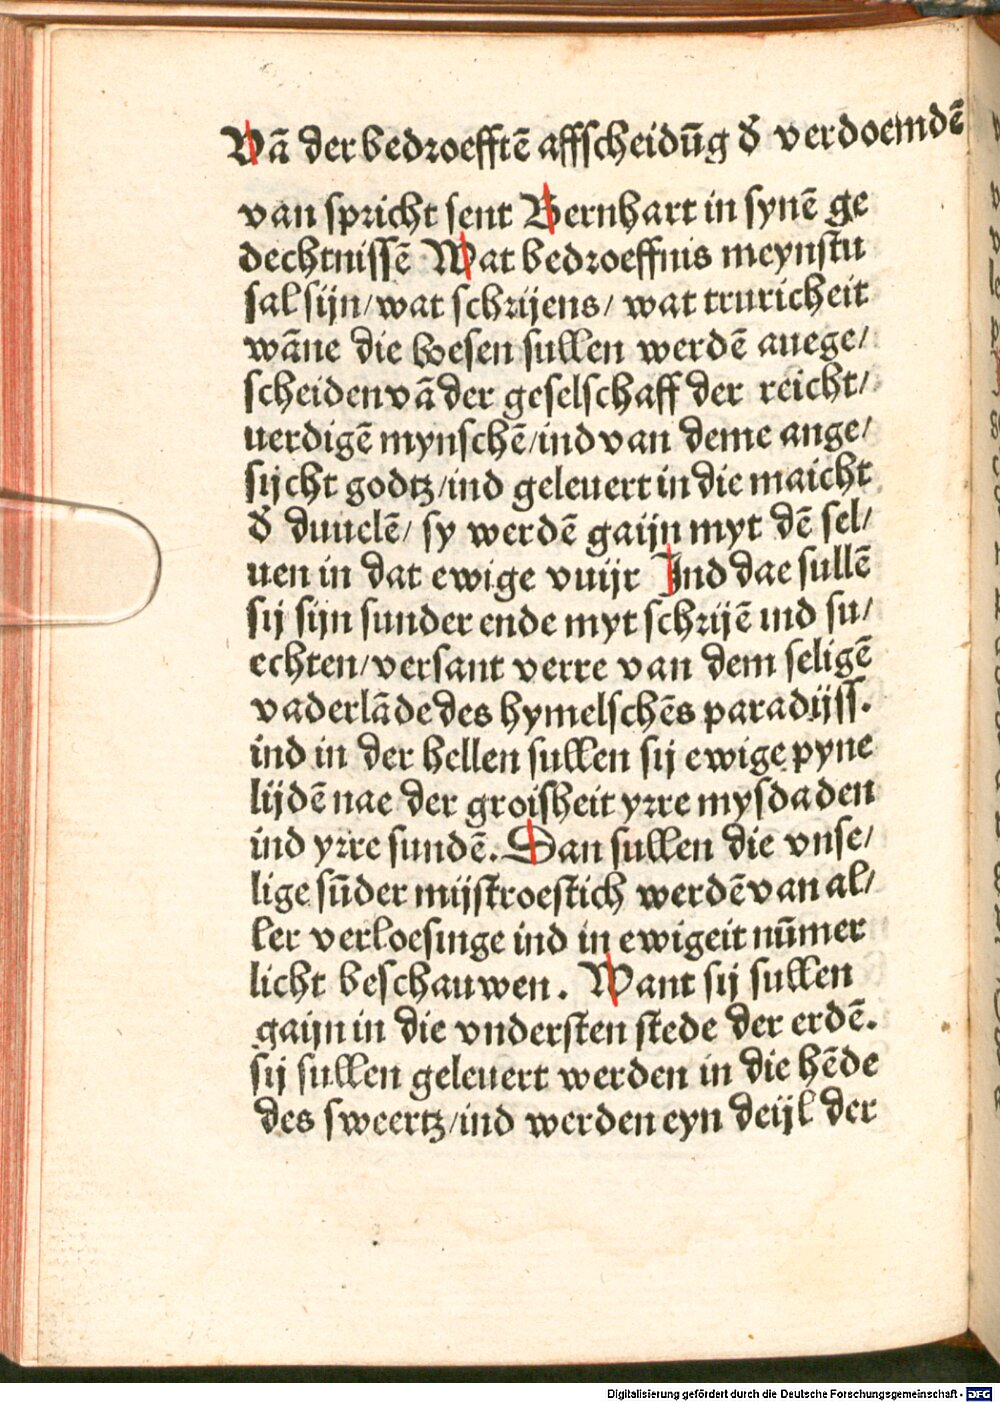 Vā der bedroefftē affscheidūg d᷎ verdoemdē
van spricht sent Bernhart in synē ge
dechtnissē Wat bedroeffnis meynstu
sal sijn/wat schrijens/ wat truricheit
wāne die boesen sullen werdē auege/
scheiden vā der geselschaff der reicht/
uerdigē mynschē/ind van deme ange/
sijcht godtz/ind geleuert in die maicht
d᷎ duuelē/ sy werdē gaijn myt dē sel/
uen in dat ewige vuijr Ind dae sullē
sij sijn sunder ende myt schrijē ind su/
echten/versant verre van dem seligē
vaderlāde des hymelschēs paradijss.
ind in der hellen sullen sij ewige pyne
lijdē nae der groisheit yrre mysdaden
ind yrre sundē. Dan sullen die vnse/
lige sūder mijstroestich werdē van al/
ler verloesinge ind in ewigeit nūmer
licht beschauwen. Want sij sullen
gaijn in die vndersten stede der erdē.
sij sullen geleuert werden in die hēde
des sweertz/ind werden eyn deijl der
Digitalisierung gefördert durch die Deutsche Forschungsgemeinschaft - DFG